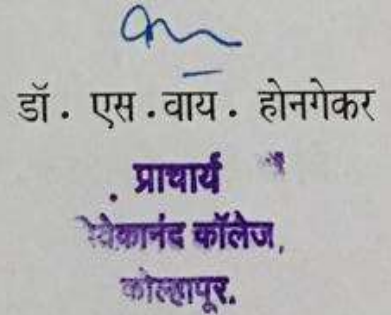 डॉ. एस.वाय. होनगेकर
प्राचार्य
विवेकानंद कॉलेज,
कोल्हापूर.